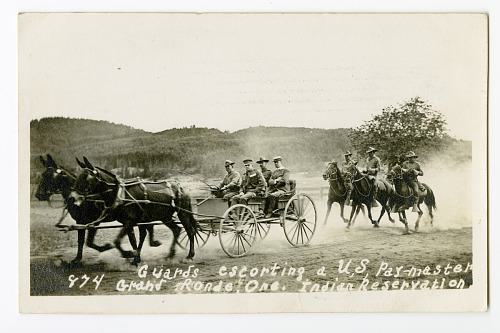 Guards escorting a U.S. Pay-master
874 Grand Ronde Ore. Indian Reservation